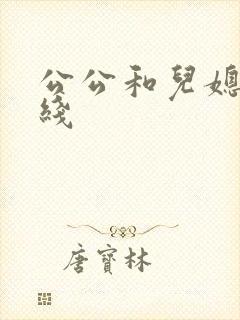 公公和兒媳
綫
唐寶林